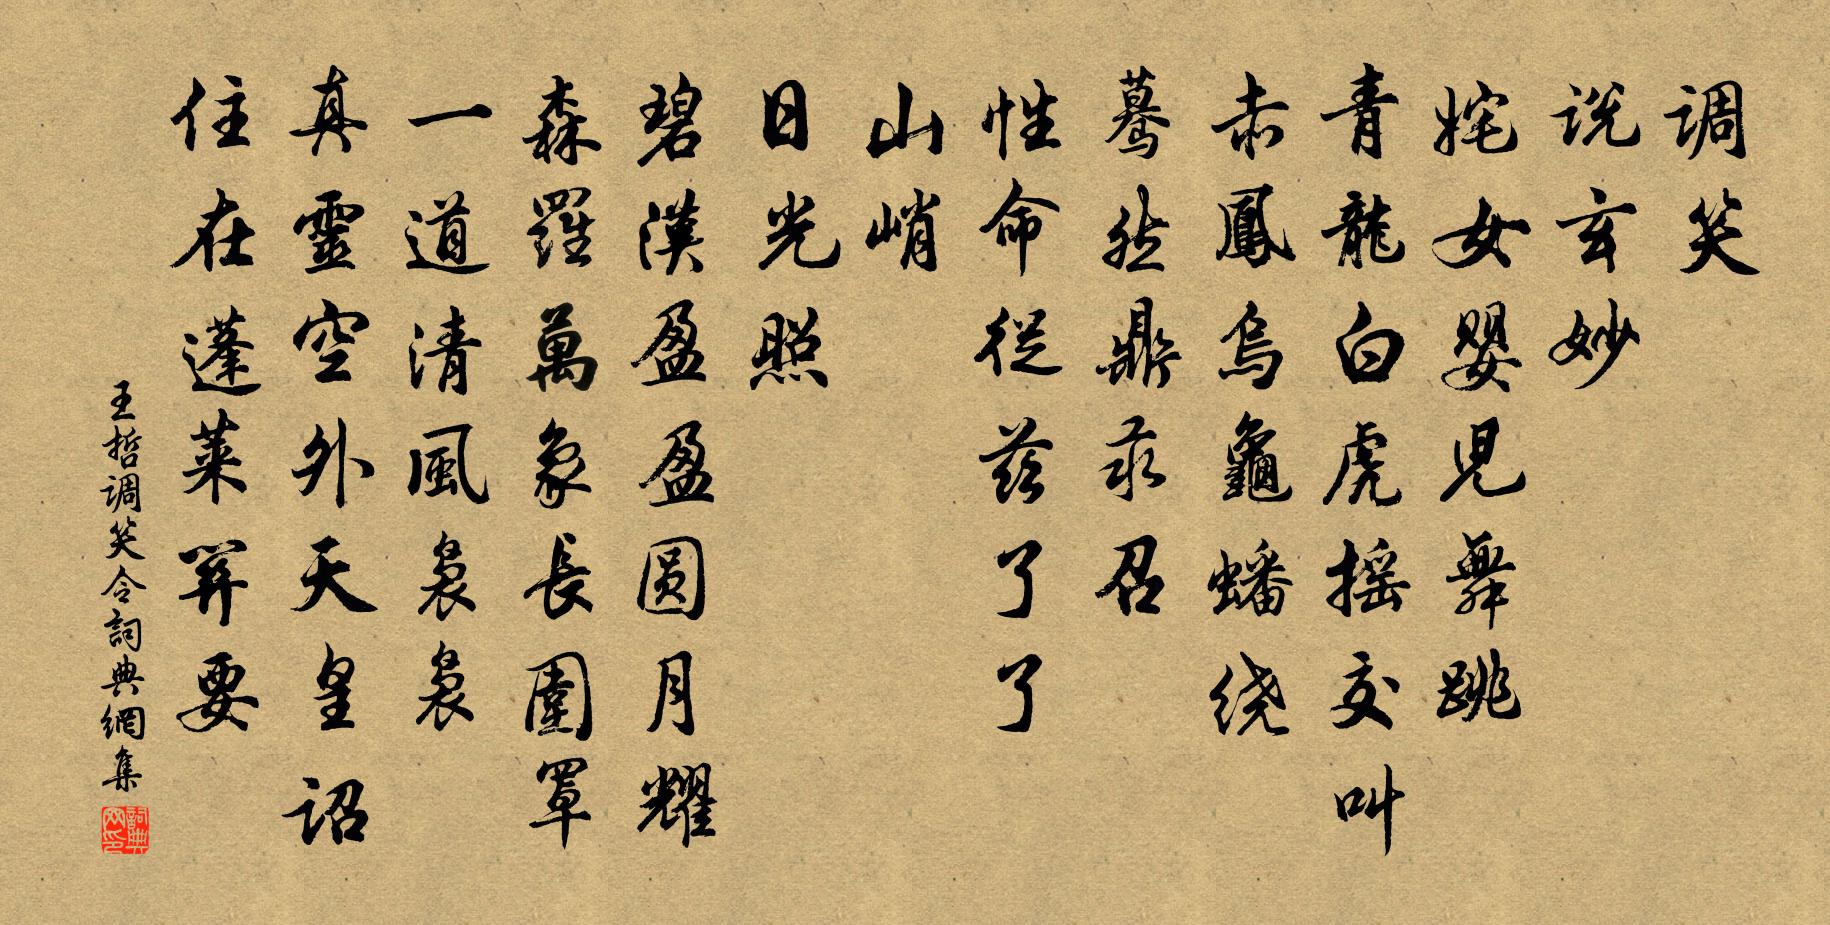 调笑
说玄妙
姹女婴児舞跳
青龍白虎摇交叫
赤鳳烏龜蟠绕
蓦然鼎汞召
性命從兹了了
山峭
日光照
碧漢盈盈圆月耀
森羅萬象長圍罩
一道清風裊裊
真靈空外天皇詔
住在蓬莱笄要
王哲调笑令詞典網集
詞典网印